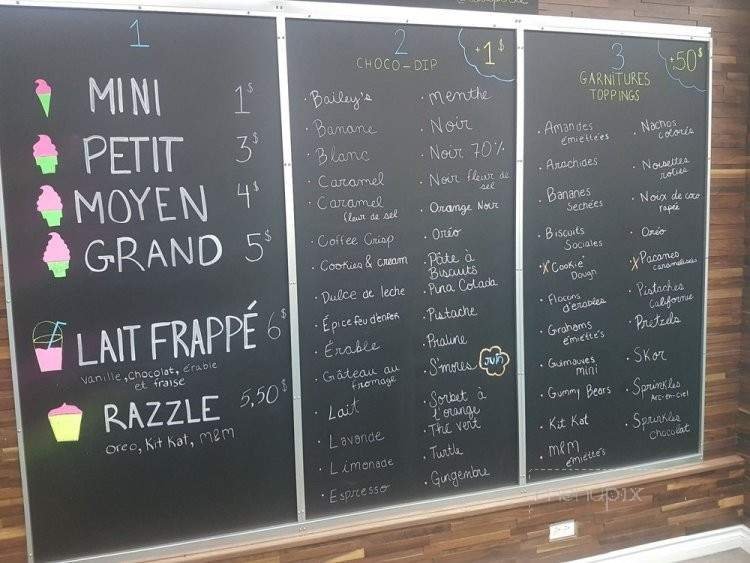 1
MINI 1$
PETIT 3$
MOYEN 4$
GRAND 5$
LAIT FRAPPÉ 6$
Vanille, chocolat, érable
et fraise
RAZZLE 5,50$
oreo, Kit Kat, M&M
2
CHOCO-DIP
+1$
• Bailey's
• Banane
• Blanc
• Caramel
• Caramel
fleur de sel
• Coffee Crisp
• Cookies & cream
• Dulce de leche
• Épice feu d'enfer
• Érable
• Gâteau au
fromage
• Lait
• Lavande
• Limonade
• Espresso
• Menthe
• Noir
• Noir 70%
• Noir fleur de
sel
• Orange Noir
• Oréo
• Pâte à
Biscuits
• Pina Colada
• Pistache
• Praline
• S'mores
JUIN
• Sorbet à
l'orange
• Thé vert
• Turtle
• Gingembre
3
GARNITURES
TOPPINGS
+,50$
• Amandes
émiettées
• Arachides
• Bananes
Sechées
• Biscuits
Sociales
• Cookie
Dough
• Flocons
d'érables
• Grahams
émiettés
• Guimauves
mini
• Gummy Bears
• Kit Kat
• M&M
émiettés
• Nachos
colorés
• Noisettes
roties
• Noix de coco
rapée
• Oréo
• Pacanes
caramelisées
• Pistaches
californie
• Pretzels
• Skor
• Sprinkles
Arc-en-ciel
• Sprinkles
chocolat
menupix